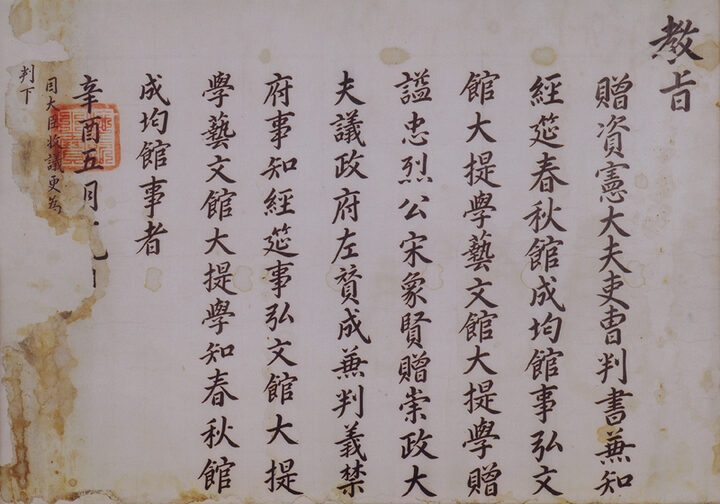 教旨
贈資憲大夫吏曹判書兼知
經筵春秋館成均館事弘文
館大提學藝文館大提學贈
謚忠烈公宋象賢贈崇政大
夫議政府左賛成兼判義禁
府事知經筵事弘文館大提
學藝文館大提學知春秋館
成均館事者
辛酉五月
因大臣收議更爲
判下